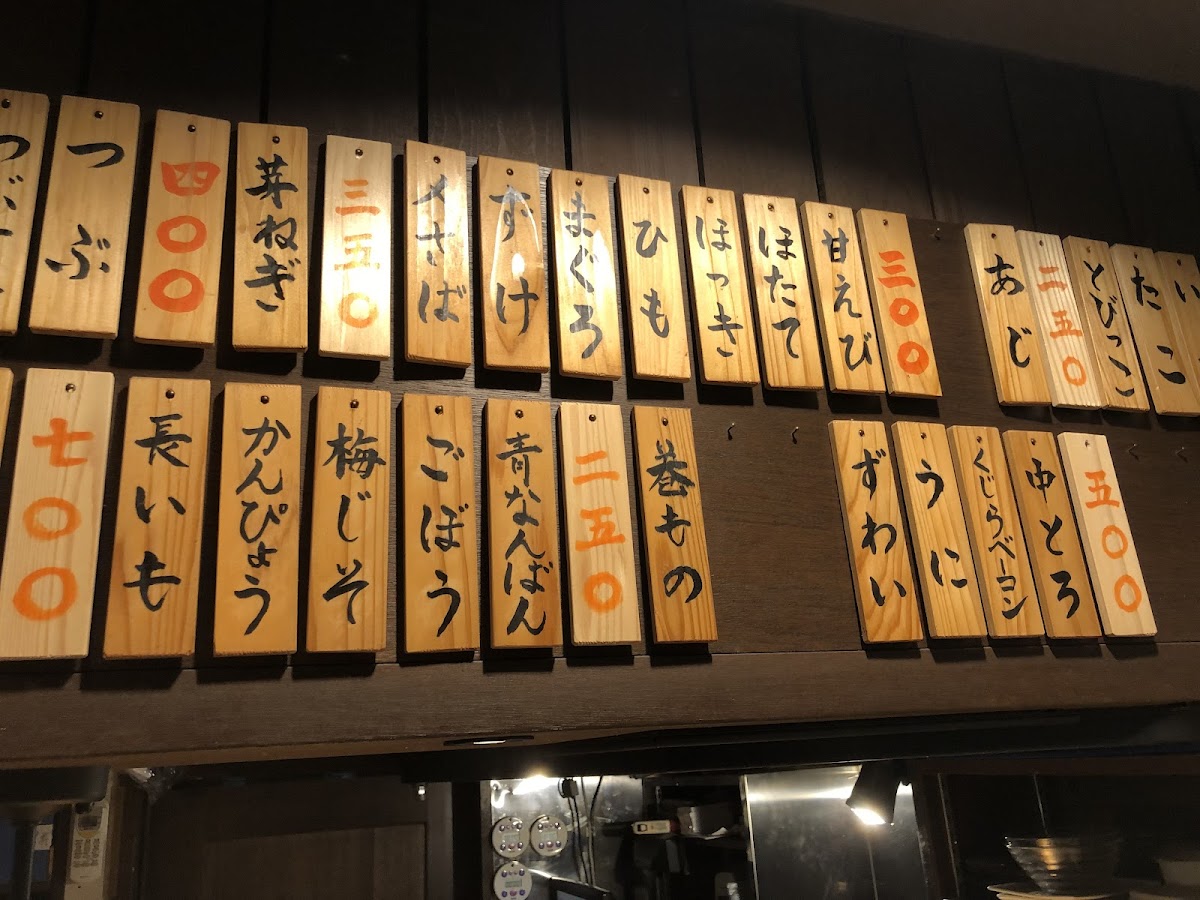 たこ
とびっこ
二五〇
あじ
三〇〇
甘えび
ほたて
ほっき
ひも
まぐろ
ずけ
〆さば
三五〇
芽ねぎ
四〇〇
つぶ
五〇〇
中とろ
くじらベーコン
うに
ずわい
巻もの
二五〇
青なんばん
ごぼう
梅じそ
かんぴょう
長いも
七〇〇